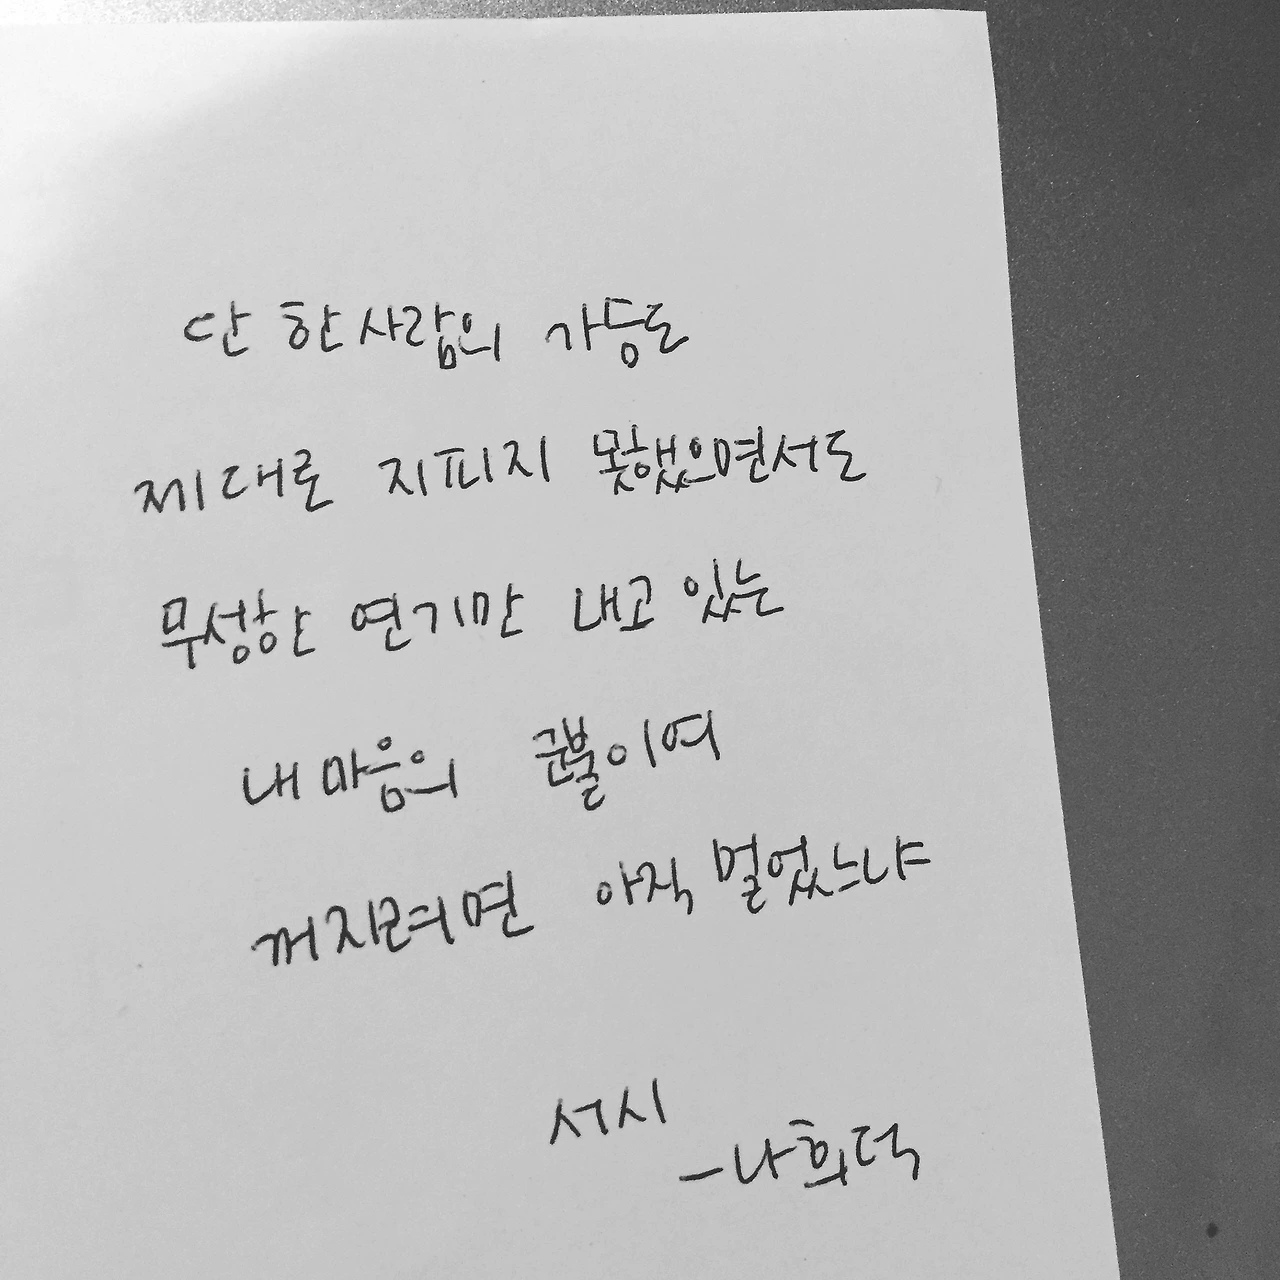 단 한 사람의 가슴도
제대로 지피지 못했으면서도
무성한 연기만 내고 있는
내 마음의 군불이여
꺼지려면 아직 멀었느냐
서시
-나희덕